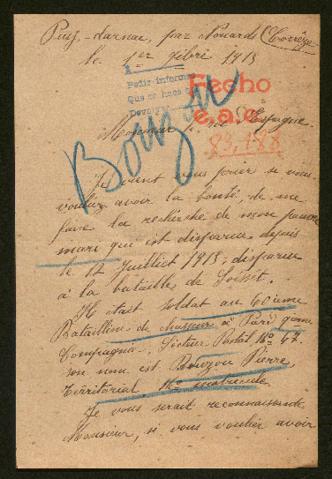 Puy-darnac, par Nonards (Corrèze
le 1er 7bre 1915
Pedir informes
Que se hace
Devolver
Fecho
e.a.e.
83,188
Bouzou
Monsieur le roi d'Espagne
Je vient vous prier si vous
voulez avoir la bonté de me
faire la recherche de mon pauvre
mari qui est disparue depuis
le 12 Juilliet 1915; disparue
à la bataille de
Il était soldat au 60ieme
Bataillon de chasseurs à Pari
Compagnie, Secteur Postal No 47.
son nom est Bouzou Pierre
Territorial
Je vous serait reconnaissende
Monsieur, si vous voulier avoir